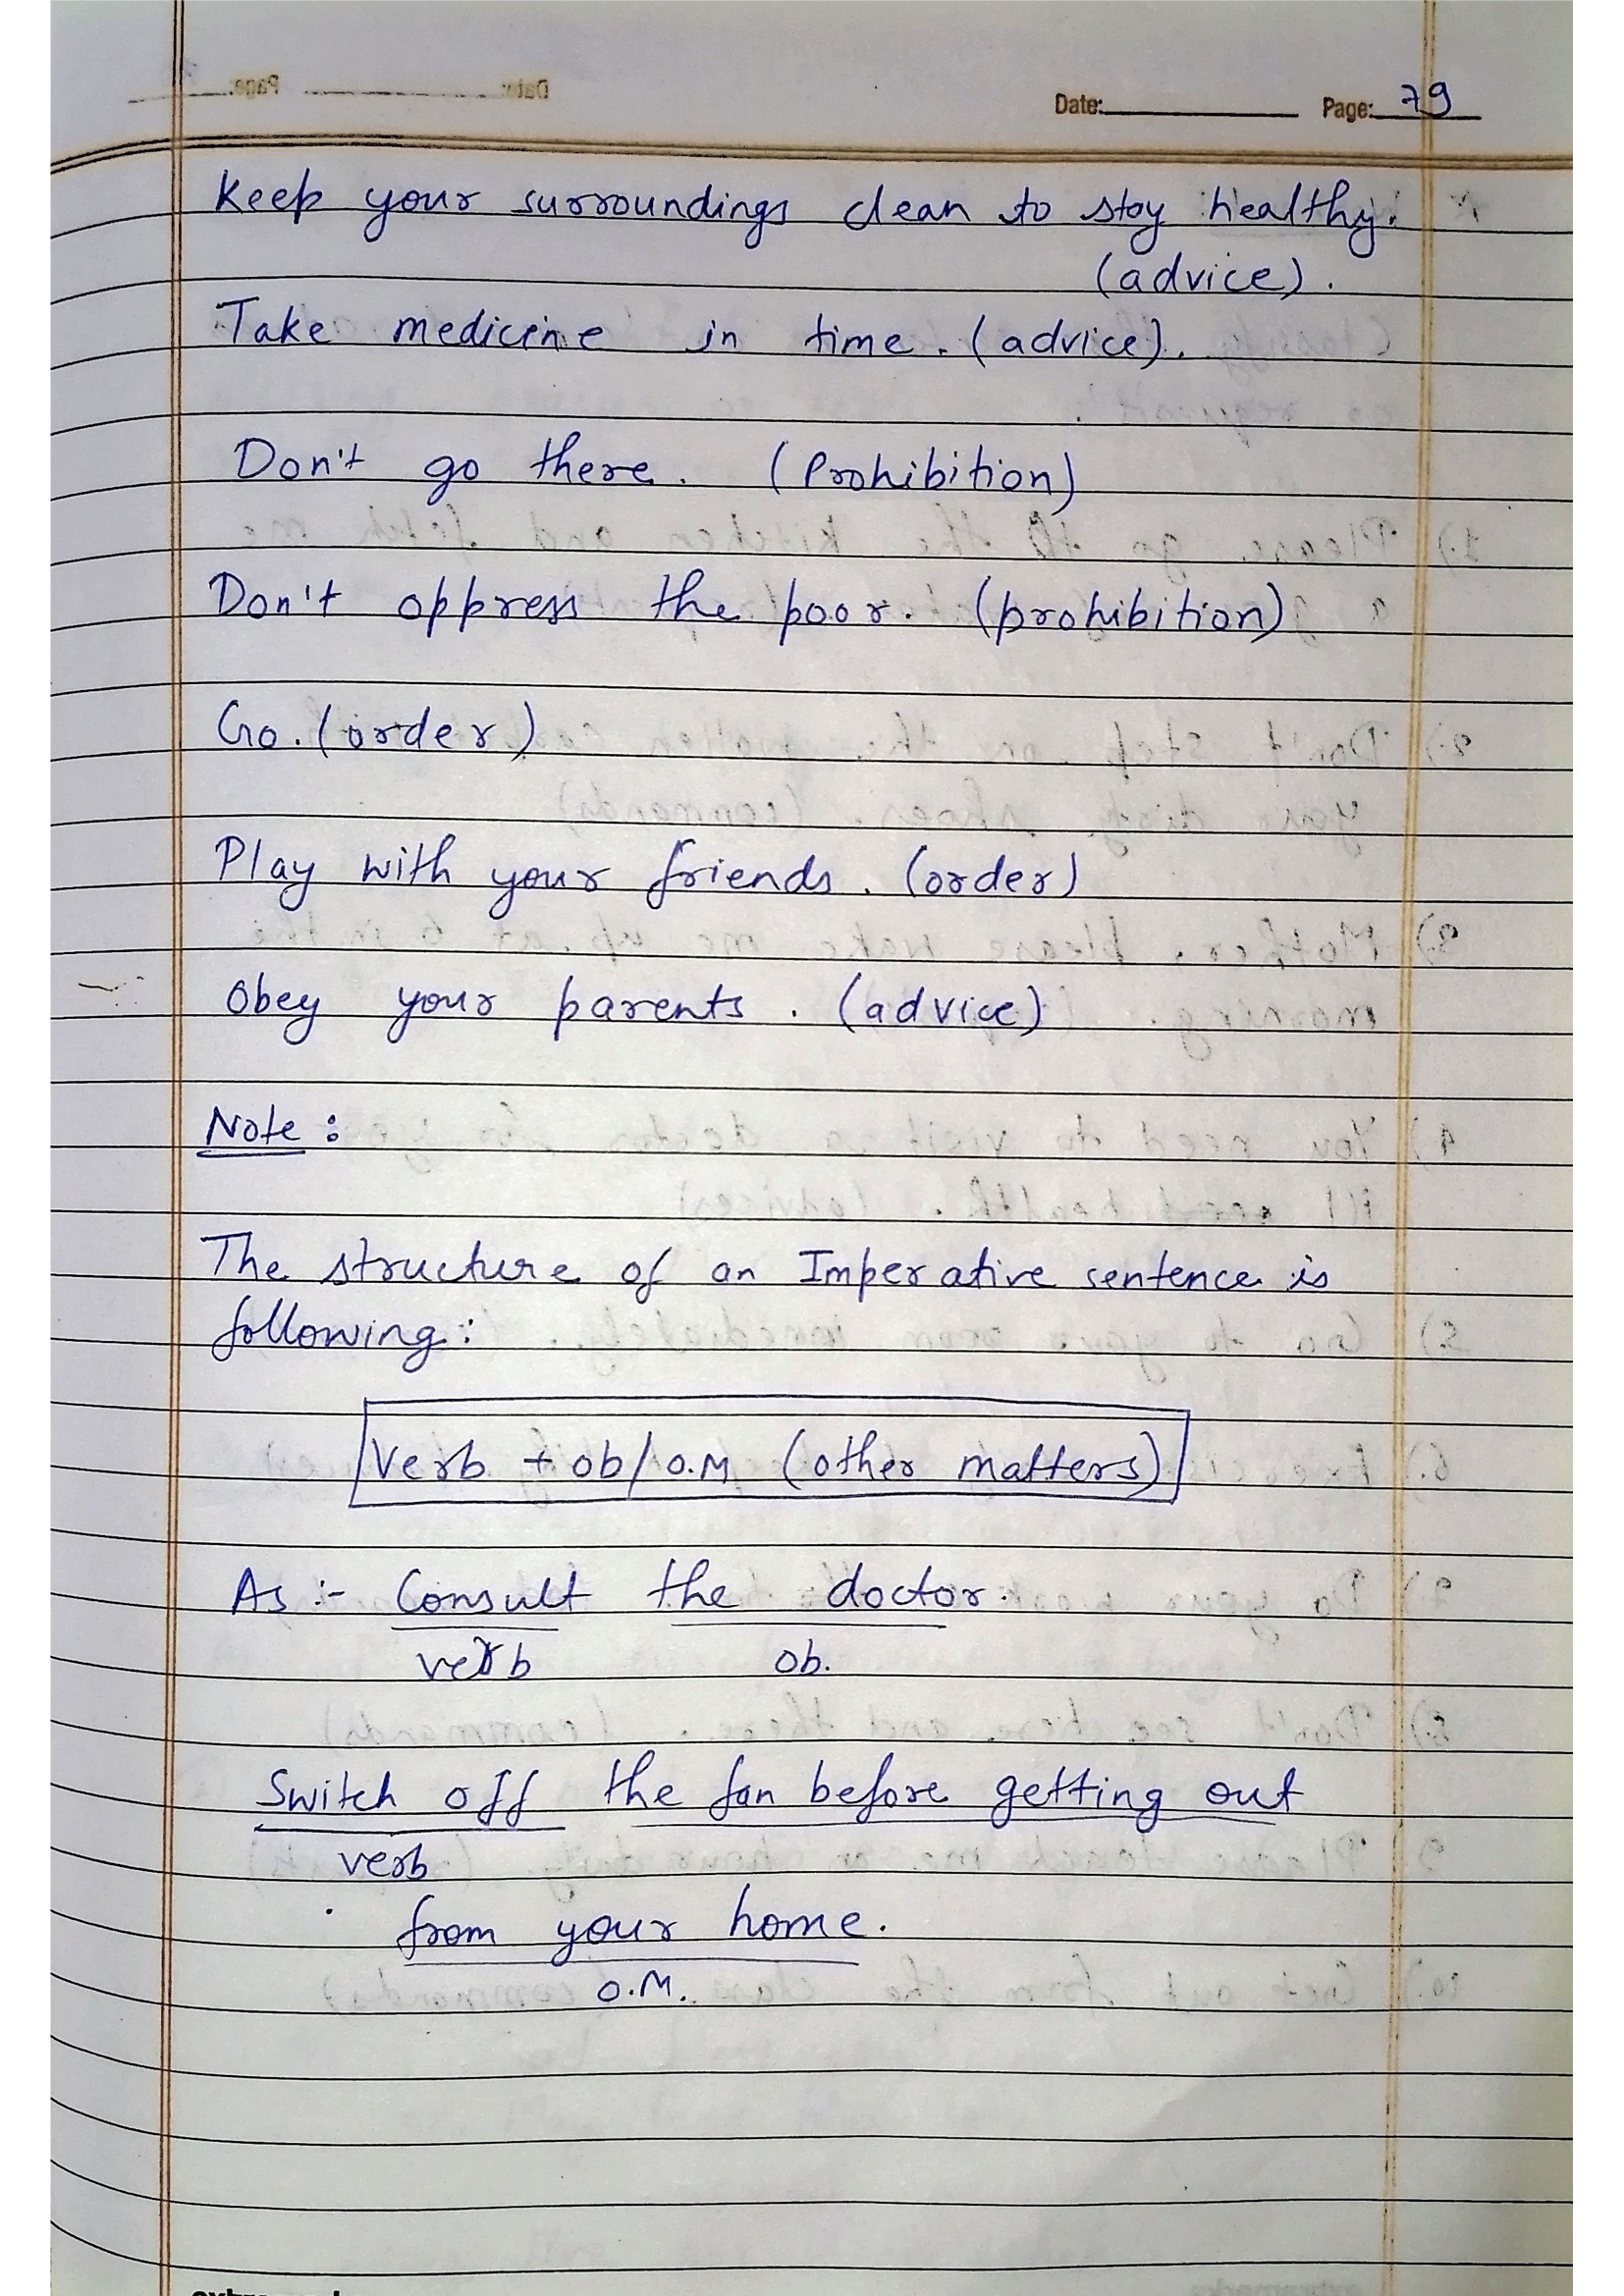 Date: Page: 79
Keep your surroundings clean to stay healthy.
(advice).
Take medicine in time. (advice).
Don't go there. (Prohibition)
Don't oppress the poor. (prohibition)
Go. (order)
Play with your friends. (order)
Obey your parents. (advice)
Note :
The structure of an Imperative sentence is
following:
Verb + ob/O.M (other matters)
As :- Consult the doctor.
verb ob.
Switch off the fan before getting out
verb
from your home.
O.M.